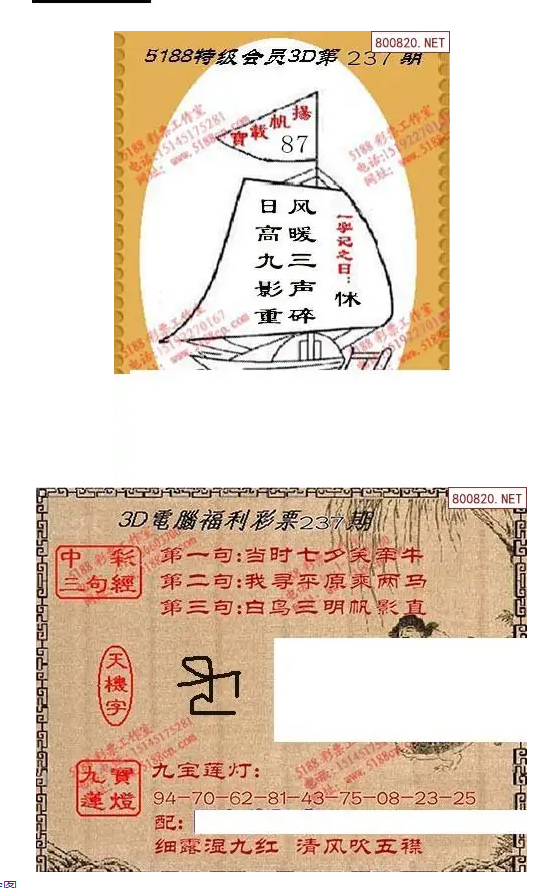 800820.NET
5188特级会员3D第237期
揚帆載寶
87
风暖三声碎
日高九影重
一字记之曰:
怵
800820.NET
3D電腦福利彩票237期
中彩三句經
第一句:当时七夕笑牵牛
第二句:我寻平原乘两马
第三句:白鸟三明帆影直
天機字
九寶蓮燈
九宝莲灯:
94-70-62-81-43-75-08-23-25
配:
细露湿九红 清风吹五襟
5188 彩票工作室
电话:15145175281
网址: www.5188cp.com